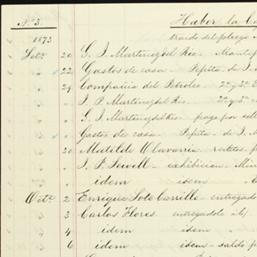 Nº 3. Haber la Ca
traido del folio
1873
Setbe 20 G. J. Martinez del Rio - Mantep
22 Gastos de casa - Pepita de J.
24 Compañia del Petroleo - 2º y 3º
J. P. Martinez del Rio - 2º y 3º
G. J. Martinez del Rio - pago por sell
Gastos de casa - Pepita - de J.
30 Matilde Olavarria - reditos
J. F. Sewell - exhibicion - Min
idem idem
Octe 2 Enrique Soto Carrillo - entregado
3 Carlos Flores - entregadole
4 idem idem
6 idem idem - saldo